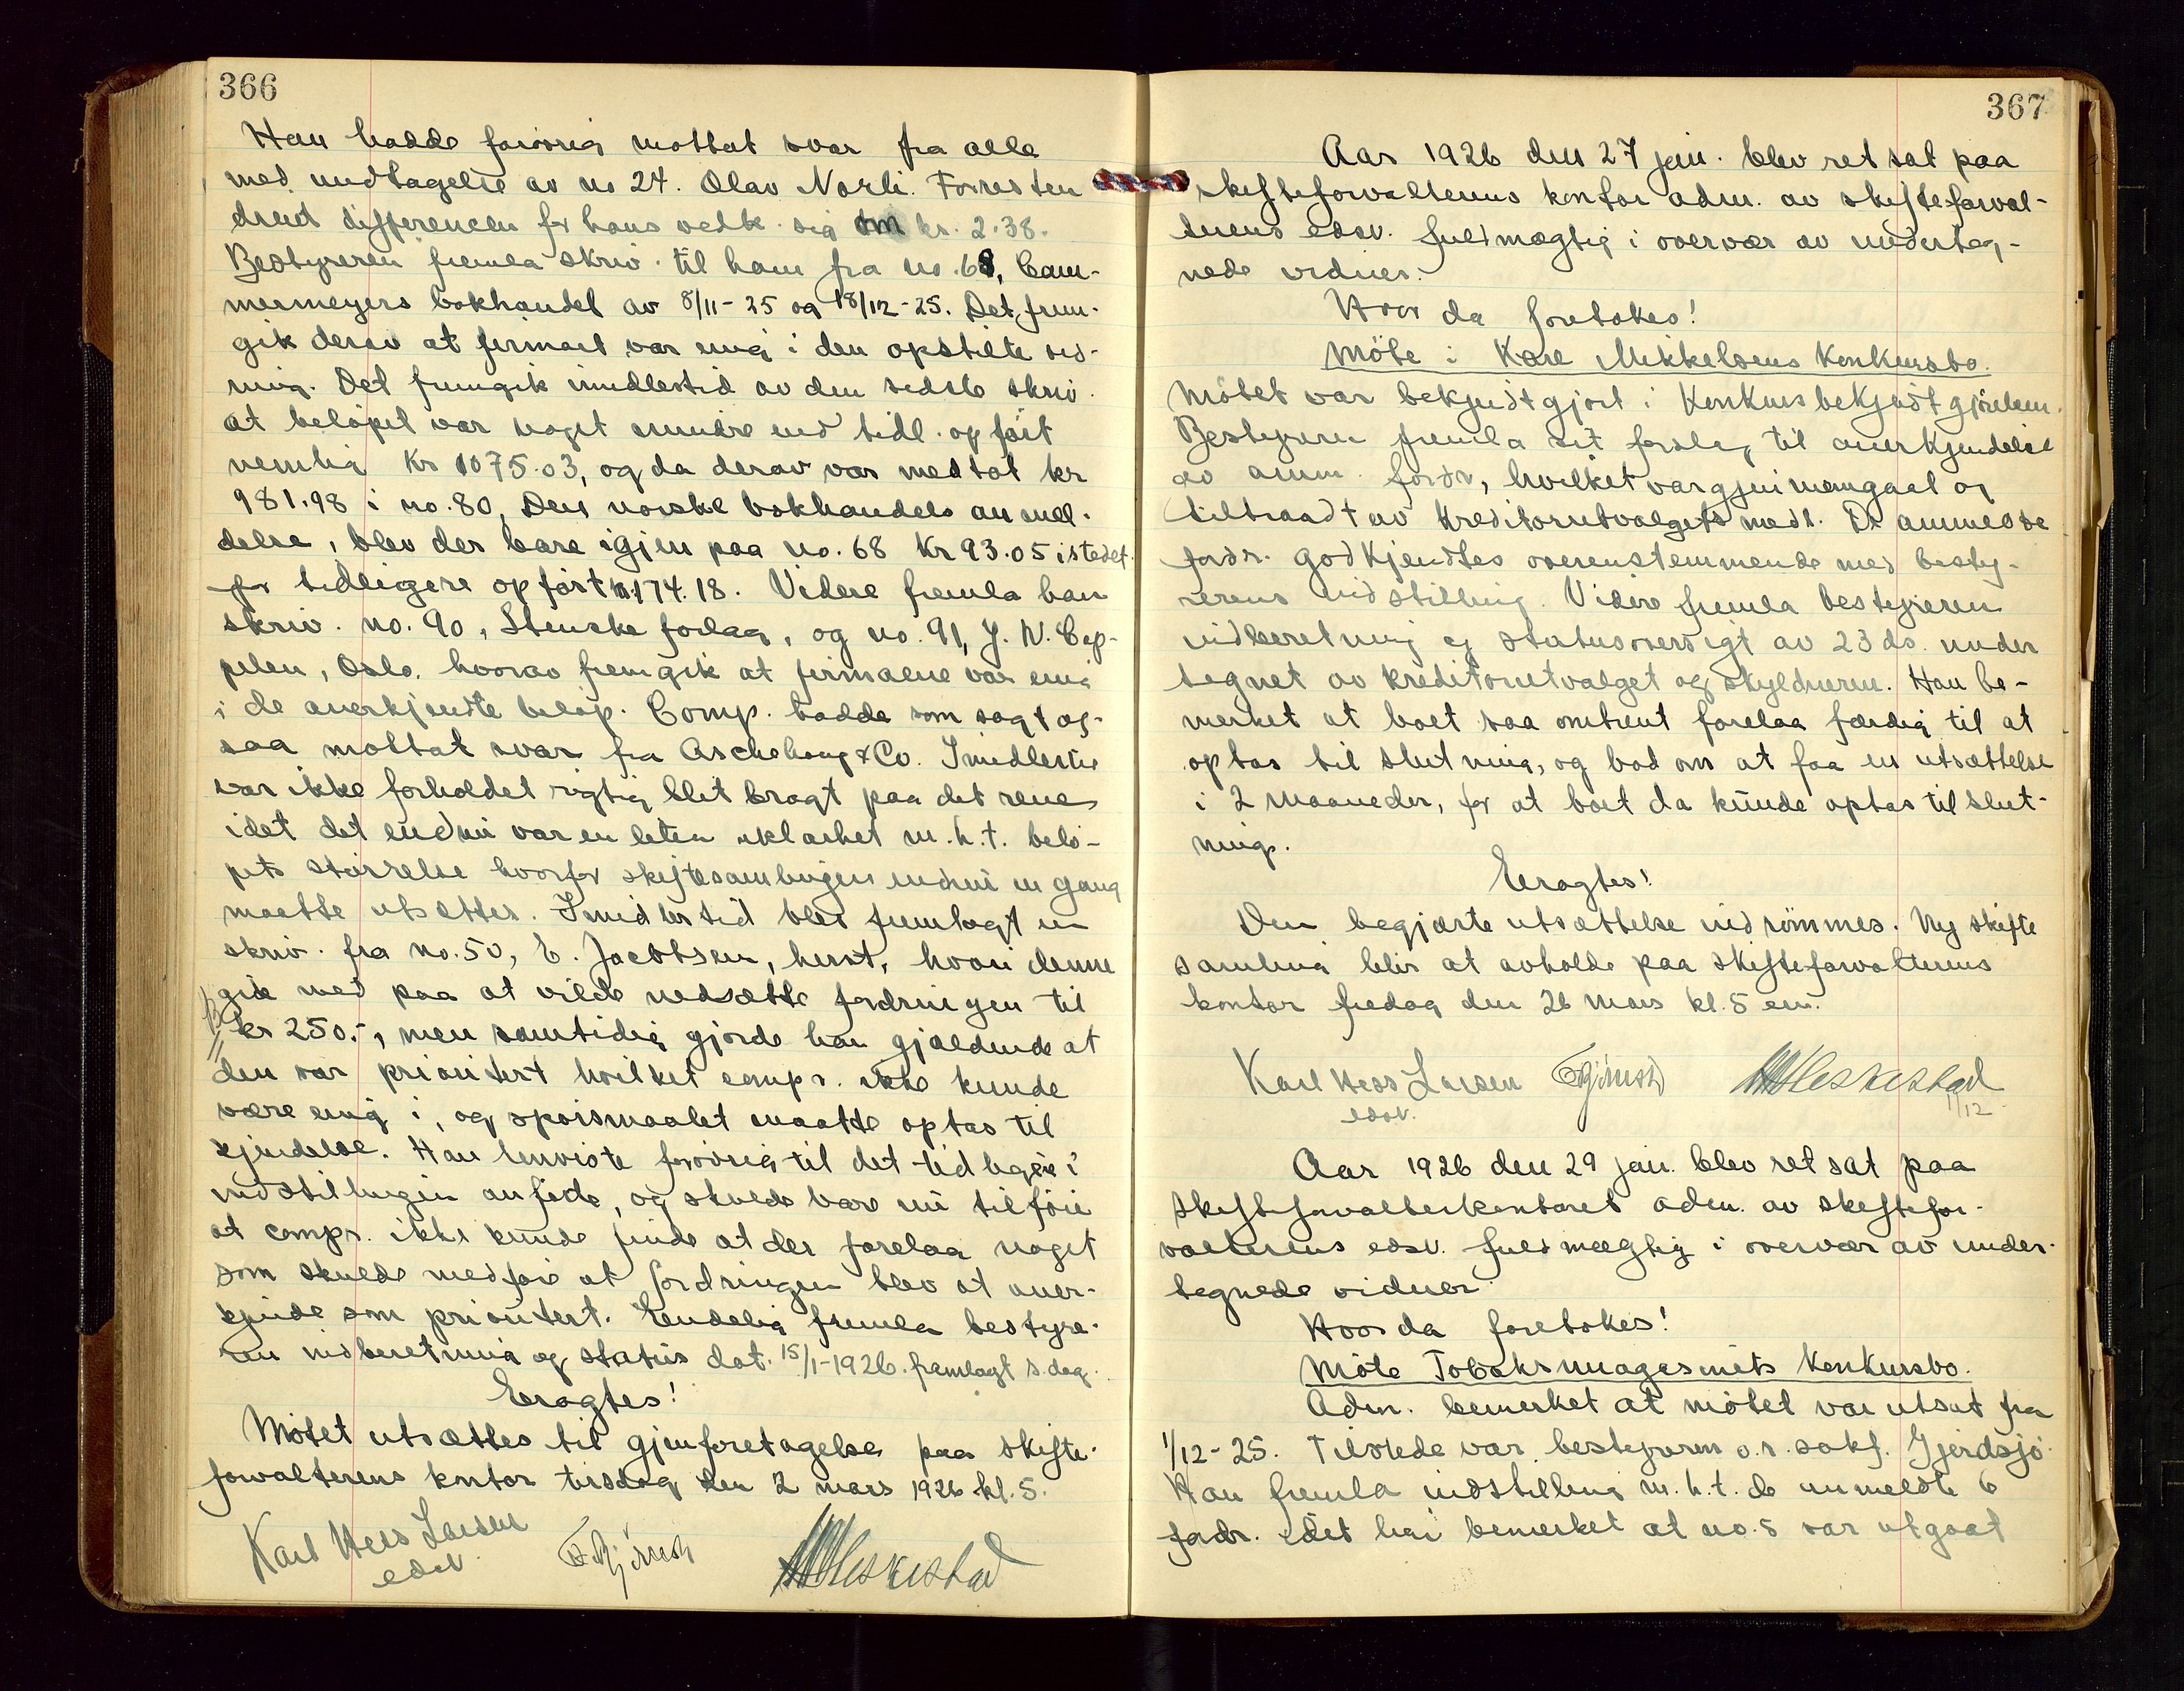 366
Han hadde forövrig mottat svar fra alle
med undtagelse av no 24. Olav Norli. Forresten
dreiet differencen for hans vedk. sig om kr. 2.38.
Bestyreren fremla skriv. til ham fra no. 68, Cam-
mermeyers bokhandel av 8/11-25 og 18/12-25. Det frem-
gik derav at firmaet var enig i den opstilte
ning. Det fremgik imidlertid av den sidste skriv.
at belöpet var noget mindre end tidl. opfört
nemlig Kr 1075.03, og da derav var medtat kr
981.98 i no. 80, Den norske bokhandels anmel-
delse, blev der bare igjen paa no. 68 Kr 93.05 istedet
for tidligere opfört kr. 174.18. Videre fremla han
skriv. no. 90, Stenske forlag, og no. 91, J. W. Cap-
pelen, Oslo. hvorav fremgik at firmaene var enig
i de anerkjendte belöp. Comp. hadde som sagt og-
saa mottat svar fra Aschehoug & Co. Imidlertid
var ikke forholdet rigtig blit bragt paa det rene
idet det endnu var en liten uklarhet m.h.t. belö-
pets störrelse hvorfor skiftesamlingen endnu en gang
maatte utsættes. Imidlertid blev fremlagt en
skriv. fra no. 50, E. Jacobsen, herst, hvori denne
gik med paa at vilde nedsætte fordringen til
kr 250.-, men samtidig gjorde han gjældende at
den var prioritert hvilket compr. ikke kunde
være enig i, og spörsmaalet maatte optas til
kjendelse. Han henviste forövrig til det tidligere i
indstillingen anförte, og skulde bare nu tilföie
at compr. ikke kunde finde at der forelaa noget
som skulde medföre at fordringen blev at aner-
kjende som prioritert. Endelig fremla bestyre-
ren indberetning og status dat. 15/1-1926. fremlagt s. dag.
Eragtes!
Mötet utsættes til gjenforetagelse paa skifte-
forvalterens kontor tirsdag den 2 mars 1926 kl. 5.
Karl Hess Larsen
edsv.
367
Aar 1926 den 27 jan. blev ret sat paa
skifteforvalterens kontor adm. av skifteforval-
terens edsv. fuldmægtig i overvær av underteg-
nede vidner.
Hvor da foretokes!
Möte i Kåre Mikkelsens Konkursbo.
Mötet var bekjendtgjort i Konkursbekjendtgjörelsen.
Bestyreren fremla sit forslag til anerkjendelse
av anm. fordr, hvilket var gjennemgaat og
tiltraadt av Kreditorutvalgets medl. De anmeldte
fordr. godkjendtes overenstemmende med besty-
rerens indstilling. Videre fremla bestyreren
indberetning og statusoversigt av 23 ds. under
tegnet av kreditorutvalget og skyldneren. Han be-
merket at boet saa omtrent forelaa færdig til at
optas til slutning, og bad om at faa en utsættelse
i 2 maaneder, for at boet da kunde optas til slut-
ning.
Eragtes!
Den begjærte utsættelse indrömmes. Ny skifte
samling blir at avholde paa skifteforvalterens
kontor fredag den 26 mars kl. 5 em.
Karl Hess Larsen
edsv.
Aar 1926 den 29 jan. blev ret sat paa
skifteforvalterkontoret adm. av skiftefor-
valterens edsv. fuldmægtig i overvær av under-
tegnede vidner.
Hvor da foretokes!
Möte Tobaksmagasinets Konkursbo.
Adm. bemerket at mötet var utsat fra
1/12-25. Tilstede var bestyreren o.r. sakf. Gjerdsjö.
Han fremla indstilling m.h.t. de anmeldte 6
fordr. idet han bemerket at no. 5 var utgaat